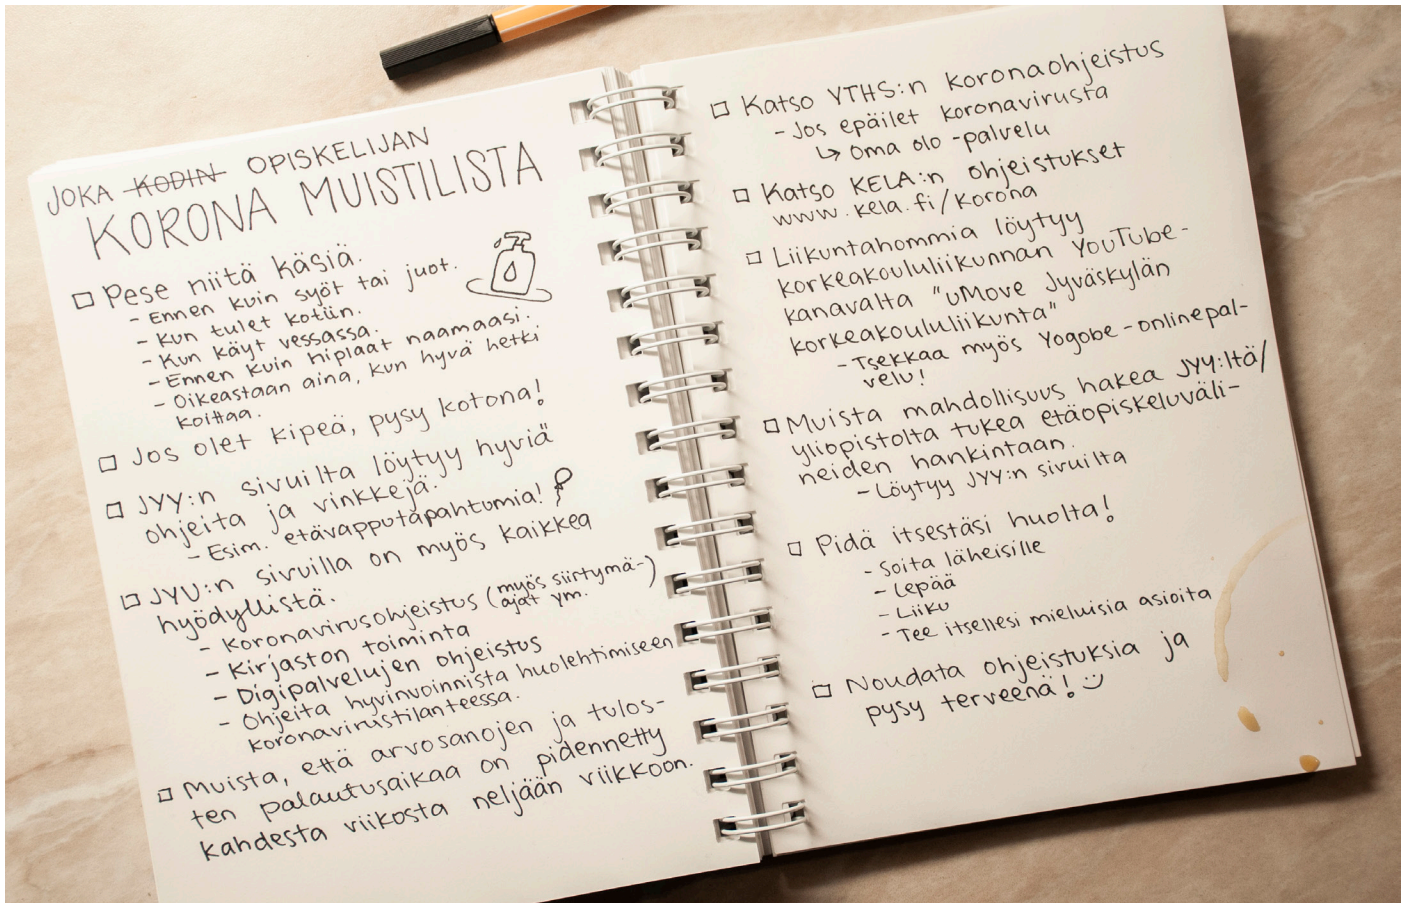 JOKA KODIN OPISKELIJAN
KORONA MUISTILISTA
Pese niitä käsiä.
- Ennen kuin syöt tai juot.
- Kun tulet kotiin.
- Kun käyt vessassa.
- Ennen kuin hiplaat naamaasi.
- Oikeastaan aina, kun hyvä hetki
koittaa.
Jos olet kipeä, pysy kotona!
JYY:n sivuilta löytyy hyviä
ohjeita ja vinkkejä.
- Esim. etävapputapahtumia!
JYU:n sivuilla on myös kaikkea
hyödyllistä.
- Koronavirusohjeistus (myös siirtymä-
ajat ym.)
- Kirjaston toiminta
- Digipalvelujen ohjeistus
- Ohjeita hyvinvoinnista huolehtimiseen
koronavirustilanteessa.
Muista, että arvosanojen ja tulos-
ten palautusaikaa on pidennetty
kahdesta viikosta neljään viikkoon.
Katso YTHS:n koronaohjeistus
- Jos epäilet koronavirusta
↳ Oma olo -palvelu
Katso KELA:n ohjeistukset
www.kela.fi/korona
Liikuntahommia löytyy
korkeakoululiikunnan YouTube-
kanavalta "uMove Jyväskylän
korkeakoululiikunta"
- Tsekkaa myös Yogobe-onlinepal-
velu!
Muista mahdollisuus hakea JYY:ltä/
yliopistolta tukea etäopiskeluväli-
neiden hankintaan.
- Löytyy JYY:n sivuilta
Pidä itsestäsi huolta!
- Soita läheisille
- Lepää
- Liiku
- Tee itsellesi mieluisia asioita
Noudata ohjeistuksia ja
pysy terveenä! :)